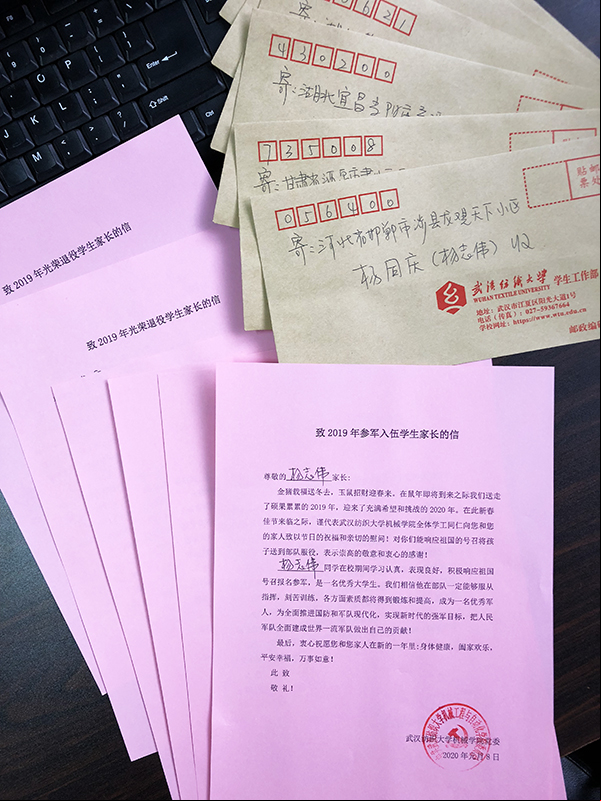 0621
430200
寄:湖北宜昌
735008
寄:甘肃
056400
寄:河北省邯郸市涉县龙观天下小区
杨同庆（杨志伟）收
贴邮
票处
武汉纺织大学 学生工作部
WUHAN TEXTILE UNIVERSITY
地址:武汉市江夏区阳光大道1号
电话（传真）:027-59367664
学校网址:https://www.wtu.edu.cn
邮政编
致2019年光荣退役学生家长的信
致2019年光荣退役学生家长的信
致2019年参军入伍学生家长的信
尊敬的杨志伟家长:
金猪载福送冬去，玉鼠招财迎春来。在鼠年即将到来之际我们送走
了硕果累累的2019年，迎来了充满希望和挑战的2020年。在此新春
佳节来临之际，谨代表武汉纺织大学机械学院全体学工同仁向您和您
的家人致以节日的祝福和亲切的慰问！对你们能响应祖国的号召将孩
子送到部队服役，表示崇高的敬意和衷心的感谢！
杨志伟同学在校期间学习认真，表现良好，积极响应祖国
号召报名参军，是一名优秀大学生。我们相信他在部队一定能够服从
指挥，刻苦训练，各方面素质都将得到锻炼和提高，成为一名优秀军
人，为全面推进国防和军队现代化，实现新时代的强军目标，把人民
军队全面建成世界一流军队做出自己的贡献！
最后，衷心祝愿您和您家人在新的一年里:身体健康，阖家欢乐，
平安幸福，万事如意！
此 致
敬 礼！
武汉纺织大学机械学院党委
2020年元月8日
Enter
Shift
Ctrl